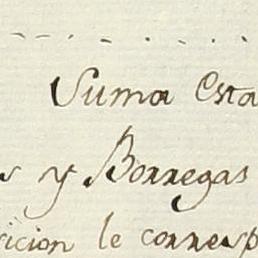 Suma Esta
s y Borregas
sicion le corresp